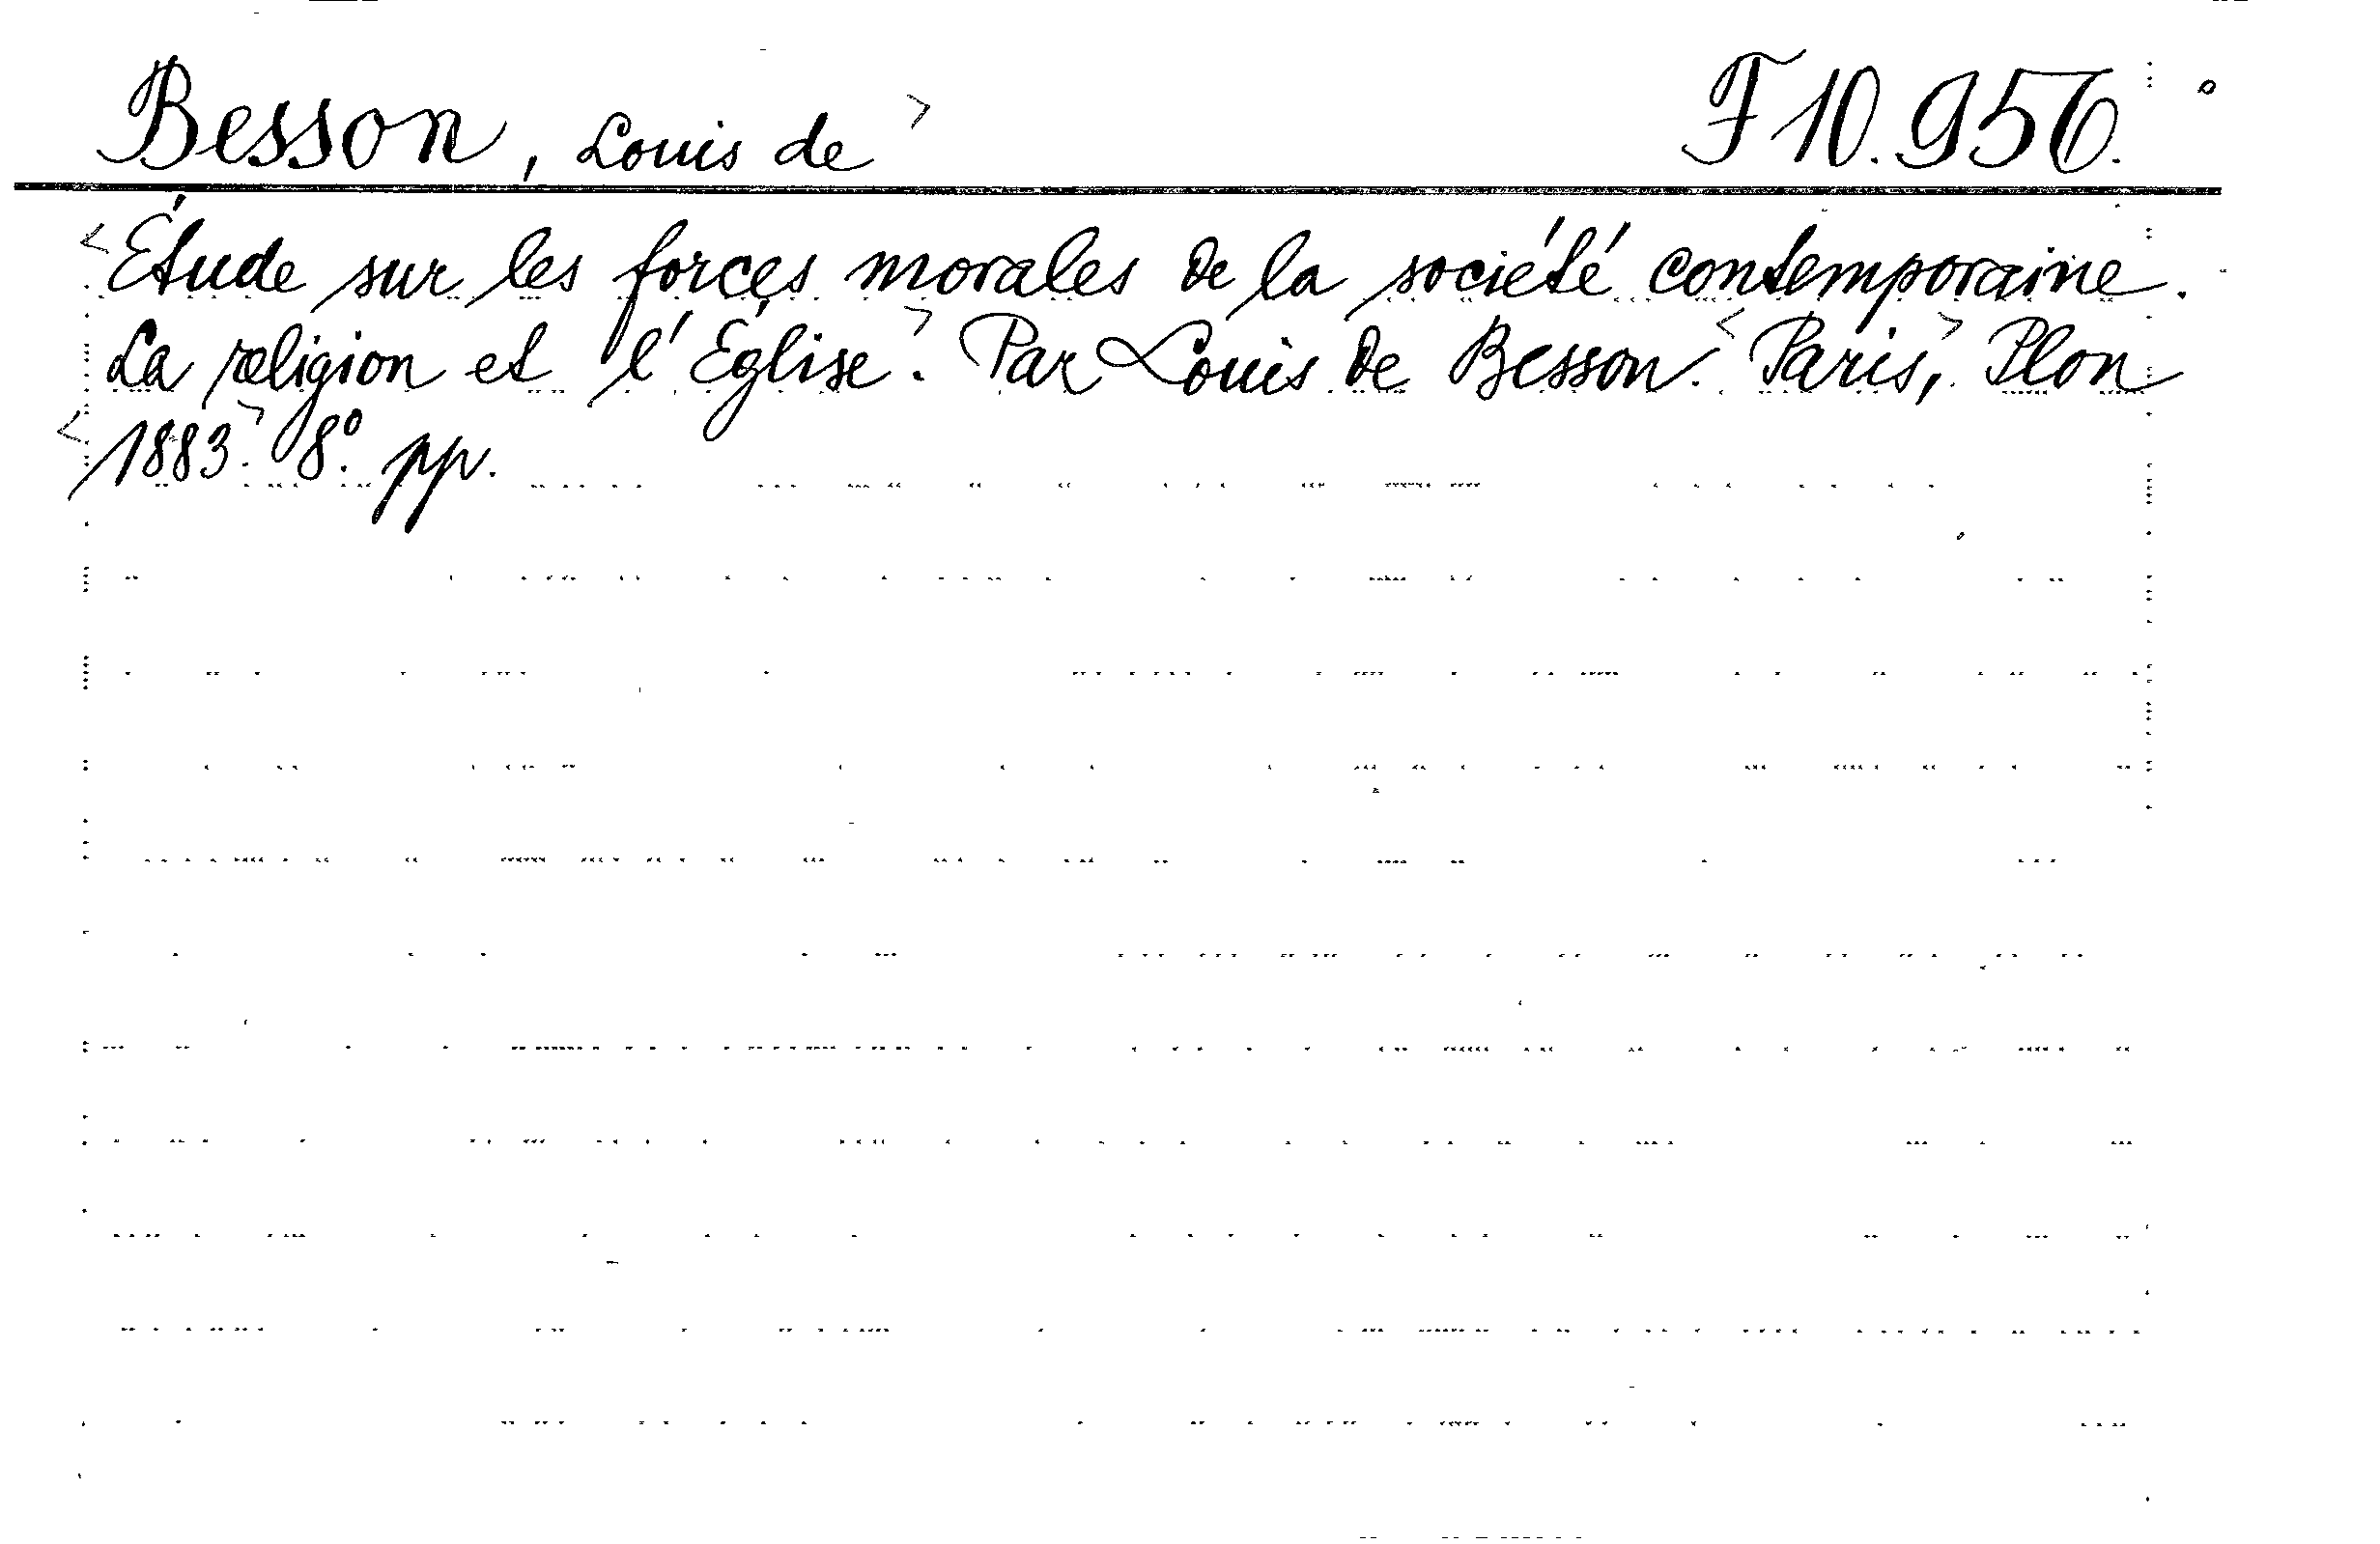 Besson, Louis de> F 10.956.
<Étude sur les forces morales de la société contemporaine.
La religion et l'Église>. Par Louis de Besson. <Paris>, Plon
<1883>. 8º. pp.